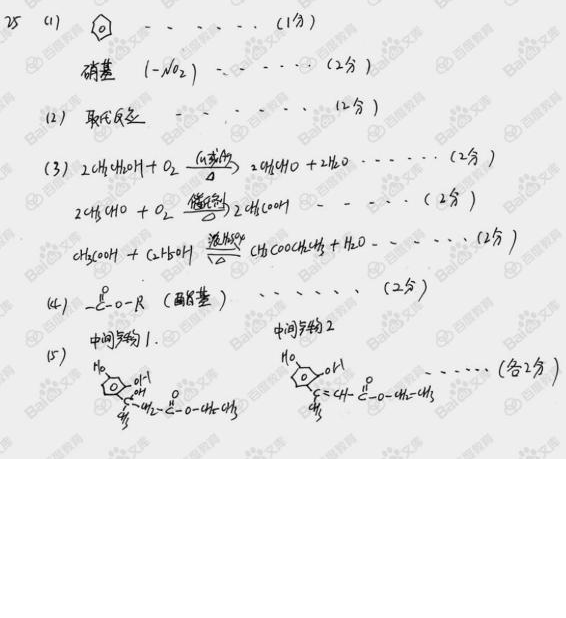 25 (1) ······ (1分)
硝基 (-NO2) ······ (2分)
(2) 取代反应 ······ (2分)
(3) 2CH3CH2OH + O2 Cu或Ag △ 2CH3CHO + 2H2O ······ (2分)
2CH3CHO + O2 催化剂 △ 2CH3COOH ····· (2分)
CH3COOH + C2H5OH 浓H2SO4 △ CH3COOCH2CH3 + H2O ····· (2分)
(4) -C-O-R O (酯基) ······ (2分)
中间产物1. 中间产物2
(5) HO OH OH C CH3 -CH2-C-O-CH2CH3 O HO OH C=CH-C-O-CH2-CH3 O CH3 ······ (各2分)
Bai百度文库
百度教育